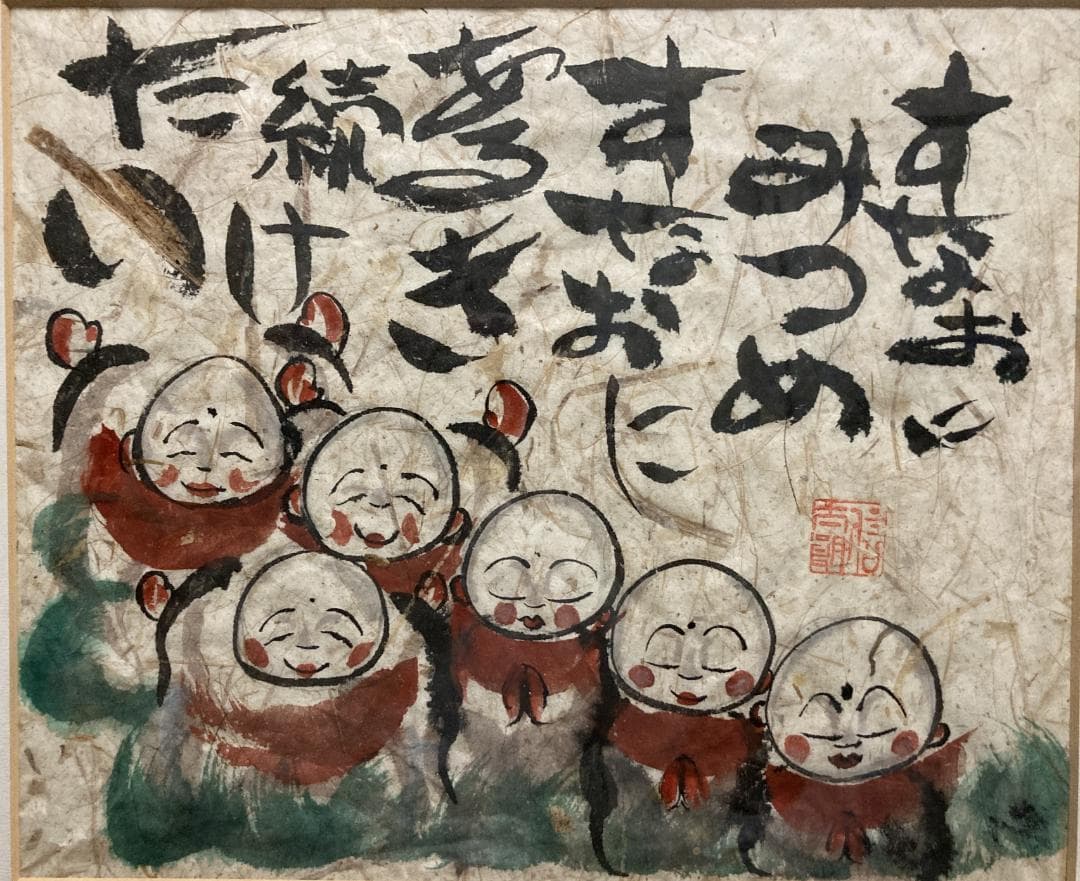 すなおに
みつめ
すなおに
あるき
続け
たい